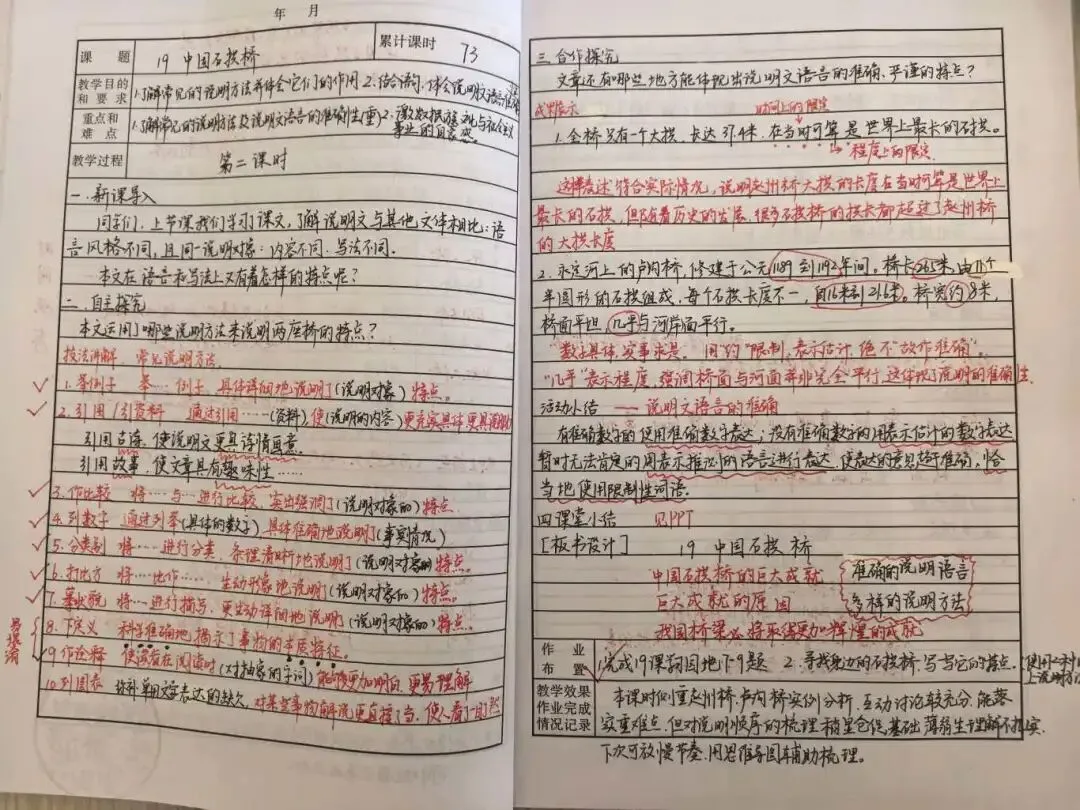 年 月
课题 19 中国石拱桥 累计课时 73
教学目的和要求 1.了解常见的说明方法并体会它们的作用 2.结合语句,体会说明文语言准确
重点和难点 1.了解常见的说明方法及说明文语言的准确性(重) 2.激发民族文化与社会主义事业的自豪感
教学过程 第二课时
一.新课导入
同学们,上节课我们学习了课文,了解说明文与其他文体相比:语
言风格不同,且同一说明对象:内容不同.写法不同。
本文在语言和写法上又有着怎样的特点呢?
二.自主探究
本文运用了哪些说明方法来说明两座桥的特点?
技法讲解 常见说明方法
1.举例子 举…例子,具体详细地说明了(说明对象)特点。
2.引用/引资料 通过引用……(资料),使(说明的内容)更充实具体更具说服力
引用古诗,使说明文更具诗情画意.
引用故事,使文章具有趣味性……
3.作比较 将…与…进行比较,突出强调了(说明对象的)特点.
4.列数字 通过列举(具体的数字)具体准确地说明了(事实情况)
5.分类别 将…进行分类,条理清晰地说明了(说明对象的)特点.
6.打比方 将…比作……生动形象地说明了(说明对象的)特点。
7.摹状貌 将…进行描写,更生动详细的说明了(说明对象的)特点.
易混淆
8.下定义 科学准确地揭示了事物的本质特征。
9.作诠释 使读者在阅读时(对抽象的字词)能够更加明白.更易理解
10.列图表 弥补单用文字表达的缺欠,对某些事物解说更直接了当,使人看了一目了然
三.合作探究
文章还有哪些地方能体现出说明文语言的准确、严谨的特点?
成果展示 时间上的限定
1.全桥只有一个大拱,长达37.4米,在当时可算是世界上最长的石拱。
程度上的限定
这样表述符合实际情况,说明赵州桥大拱的长度在当时可算是世界上
最长的石拱,但随着历史的发展,很多石拱桥的拱长都超过了赵州桥
的大拱长度
2.永定河上的卢沟桥,修建于公元1189到1192年间。桥长265米,由11个
半圆形的石拱组成,每个石拱长度不一,自16米到21.6米。桥宽约8米,
桥面平坦,几乎与河岸面平行。
"数字具体,实事求是。用"约"限制,表示估计,绝不"故作准确"。
"几乎"表示程度,强调桥面与河面并非完全平行,这体现了说明的准确性.
活动小结 —— 说明文语言的准确
有准确数字的使用准确数字表达;没有准确数字的用表示估计的数字表达
暂时无法肯定的用表示推测的语言进行表达,使表达的意见趋于准确,恰
当地使用限制性词语.
四.课堂小结 见PPT
[板书设计] 19 中国石拱桥
中国石拱桥的巨大成就 准确的说明语言
巨大成就的原因 多样的说明方法
我国桥梁必将取得更加辉煌的成就
作业布置 1.完成19课新园地下9题 2.寻找身边的石拱桥,写写它的特点.
教学效果作业完成情况记录 本课时侧重赵州桥.卢沟桥实例分析.互动讨论较充分.能落
实重难点.但对说明顺序的梳理稍显仓促.基础薄弱生理解不扎实.
下次可放慢节奏.用思维导图辅助梳理。